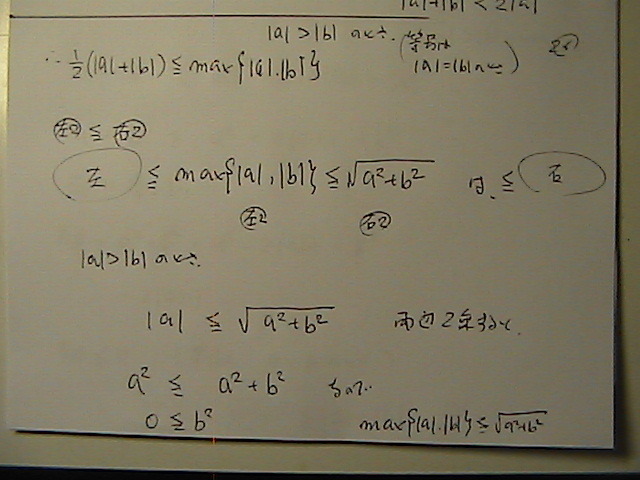 |a|+|b| < 2|a|
|a|>|b| のとき. (等号は
∴ 1/2(|a|+|b|) ≦ max{|a|.|b|} |a|=|b|のとき)
左2 ≦ 右2
左 ≦ max{|a|,|b|} ≦ √a²+b² ≦ 右
左2 右2
|a|>|b| のとき.
|a| ≦ √a²+b² 両辺2乗して.
a² ≦ a²+b² なので.
0 ≦ b² max{|a|.|b|} ≦ √a²+b²